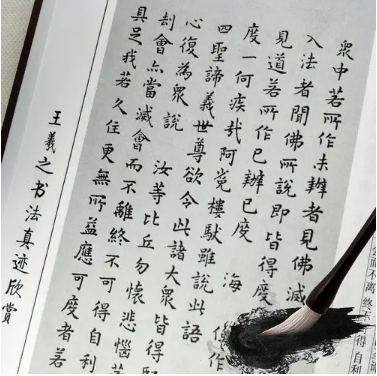 衆中若所作未辦者見佛滅
入法者聞佛所說即皆得度
見道若所作已辦已度 海
度一何疾哉阿㝹樓馱雖說此語
四聖諦義世尊欲令此諸大衆皆得
心復為衆說 汝等比丘勿懷悲惱若
刦會亦當滅會而不離終不可得自利
具足我若久住更無所益應可度者若
王羲之书法真迹欣赏
而不离 终
得 自利